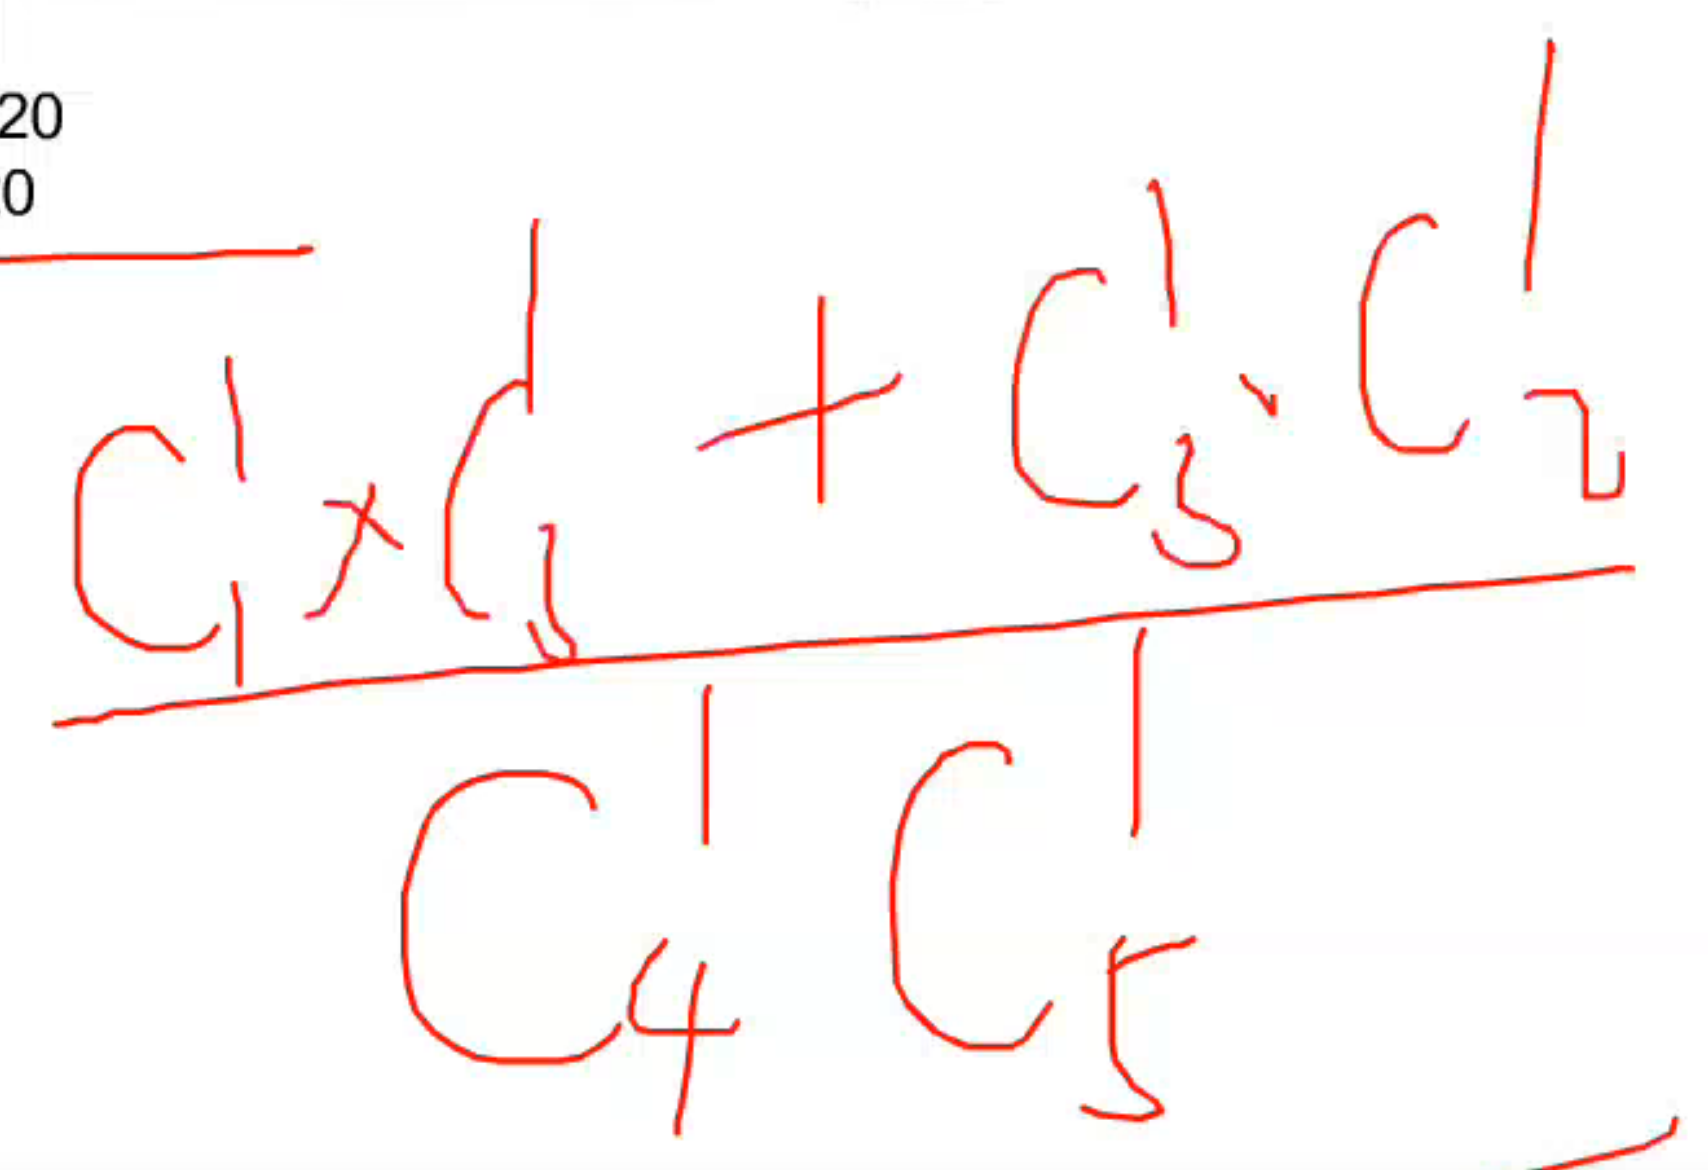 20
0
C₁¹ × C₃¹ + C₃¹ × C₂¹
C₄¹ C₅¹